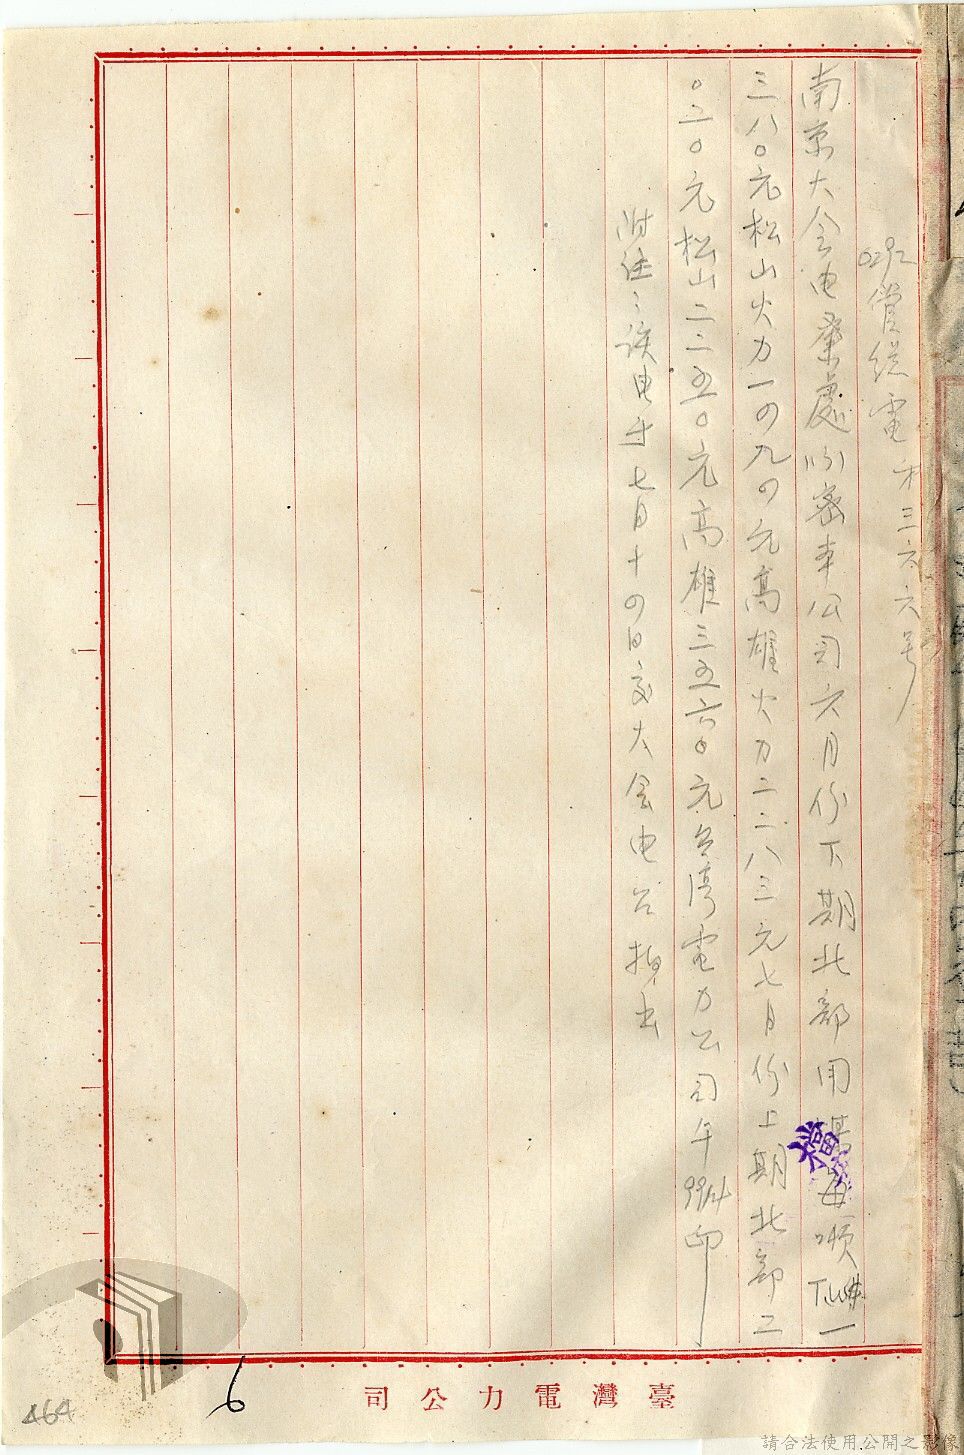 0292 償総電才三六六号
南京大会电業處 密本公司六月份下期北部用 每 一
三八〇元松山火力一四九四元高雄火力二二八三元七月份上期北部二
〇二〇元松山二二五〇元高雄三五六〇元台湾電力公司午 印
附註：該电于七月十四日交大会电台拍出
臺灣電力公司
6
464
請合法使用公開之影像